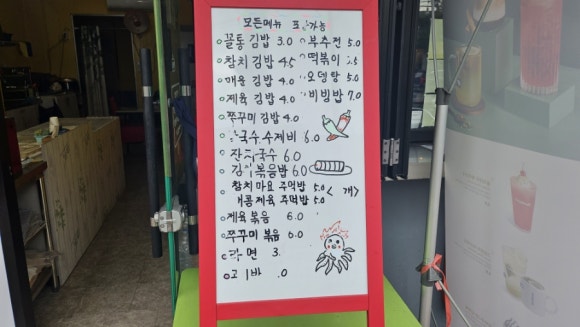 모든메뉴 가능
꼴통 김밥 3.0
참치 김밥 4.5
매운 김밥 4.0
제육 김밥 4.0
쭈꾸미 김밥 4.0
국수.수제비 6.0
잔치국수 6.0
볶음밥 6.0
참치마요 주먹밥 5.0
매콤제육 주먹밥 5.0 < 개>
제육 볶음 6.0
쭈꾸미 볶음 6.0
면 3.
부추전 5.0
떡볶이
오뎅탕 5.0
비빔밥 7.0